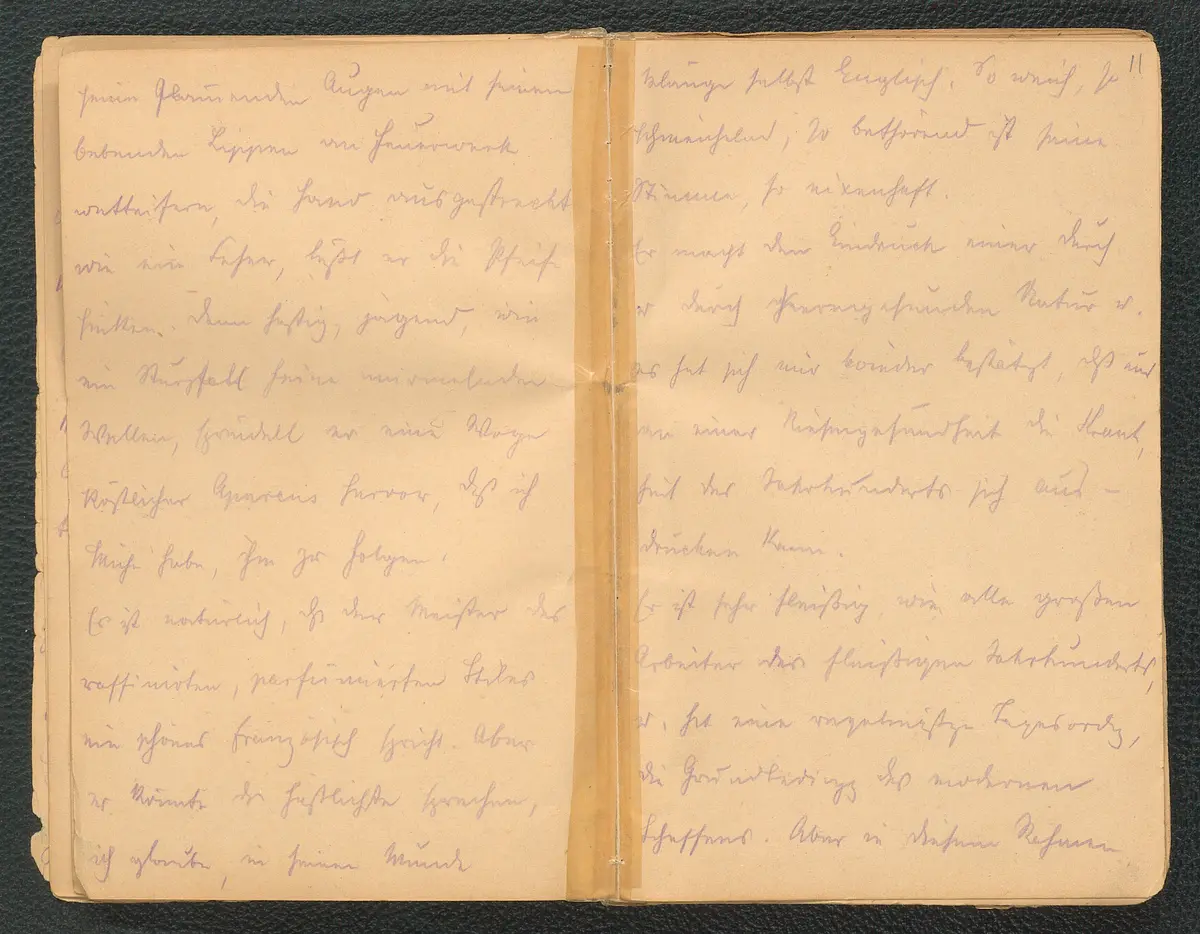 seine flammenden Augen mit seinen
bebenden Lippen an Feuerwerk
wetteifern, die Hand ausgestreckt
wie ein Seher, läßt er die Pfeile
. Dann hastig, jagend, wie
ein Sturzfall seine murmelnden
Wellen, sprudelt er eine Woge
köstlicher Aperçus hervor, daß ich
Mühe habe, ihm zu folgen.
Es ist natürlich, dß der Meister des
raffinirten, parfümierten Stiles
ein schönes Französisch spricht. Aber
er könnte das häßlichste sprechen,
ich glaube, in seinem Munde
11
klänge selbst Englisch. So weich, so
schmeichelnd, so bethörend ist seine
Stimme, so nixenhaft.
Er macht den Eindruck einer durch
u durch kerngesunden Natur u.
es hat sich mir wieder bestätigt, dß nur
an einer Riesengesundheit die Krank
heit des Jahrhunderts sich aus-
drücken kann.
Er ist sehr fleißig wie alle großen
Arbeiter des fleißigen Jahrhunderts,
u. hat eine regelmäßige Tagesordg,
die Grundbedingg des modernen
Schaffens. Aber in diesem Rahmen